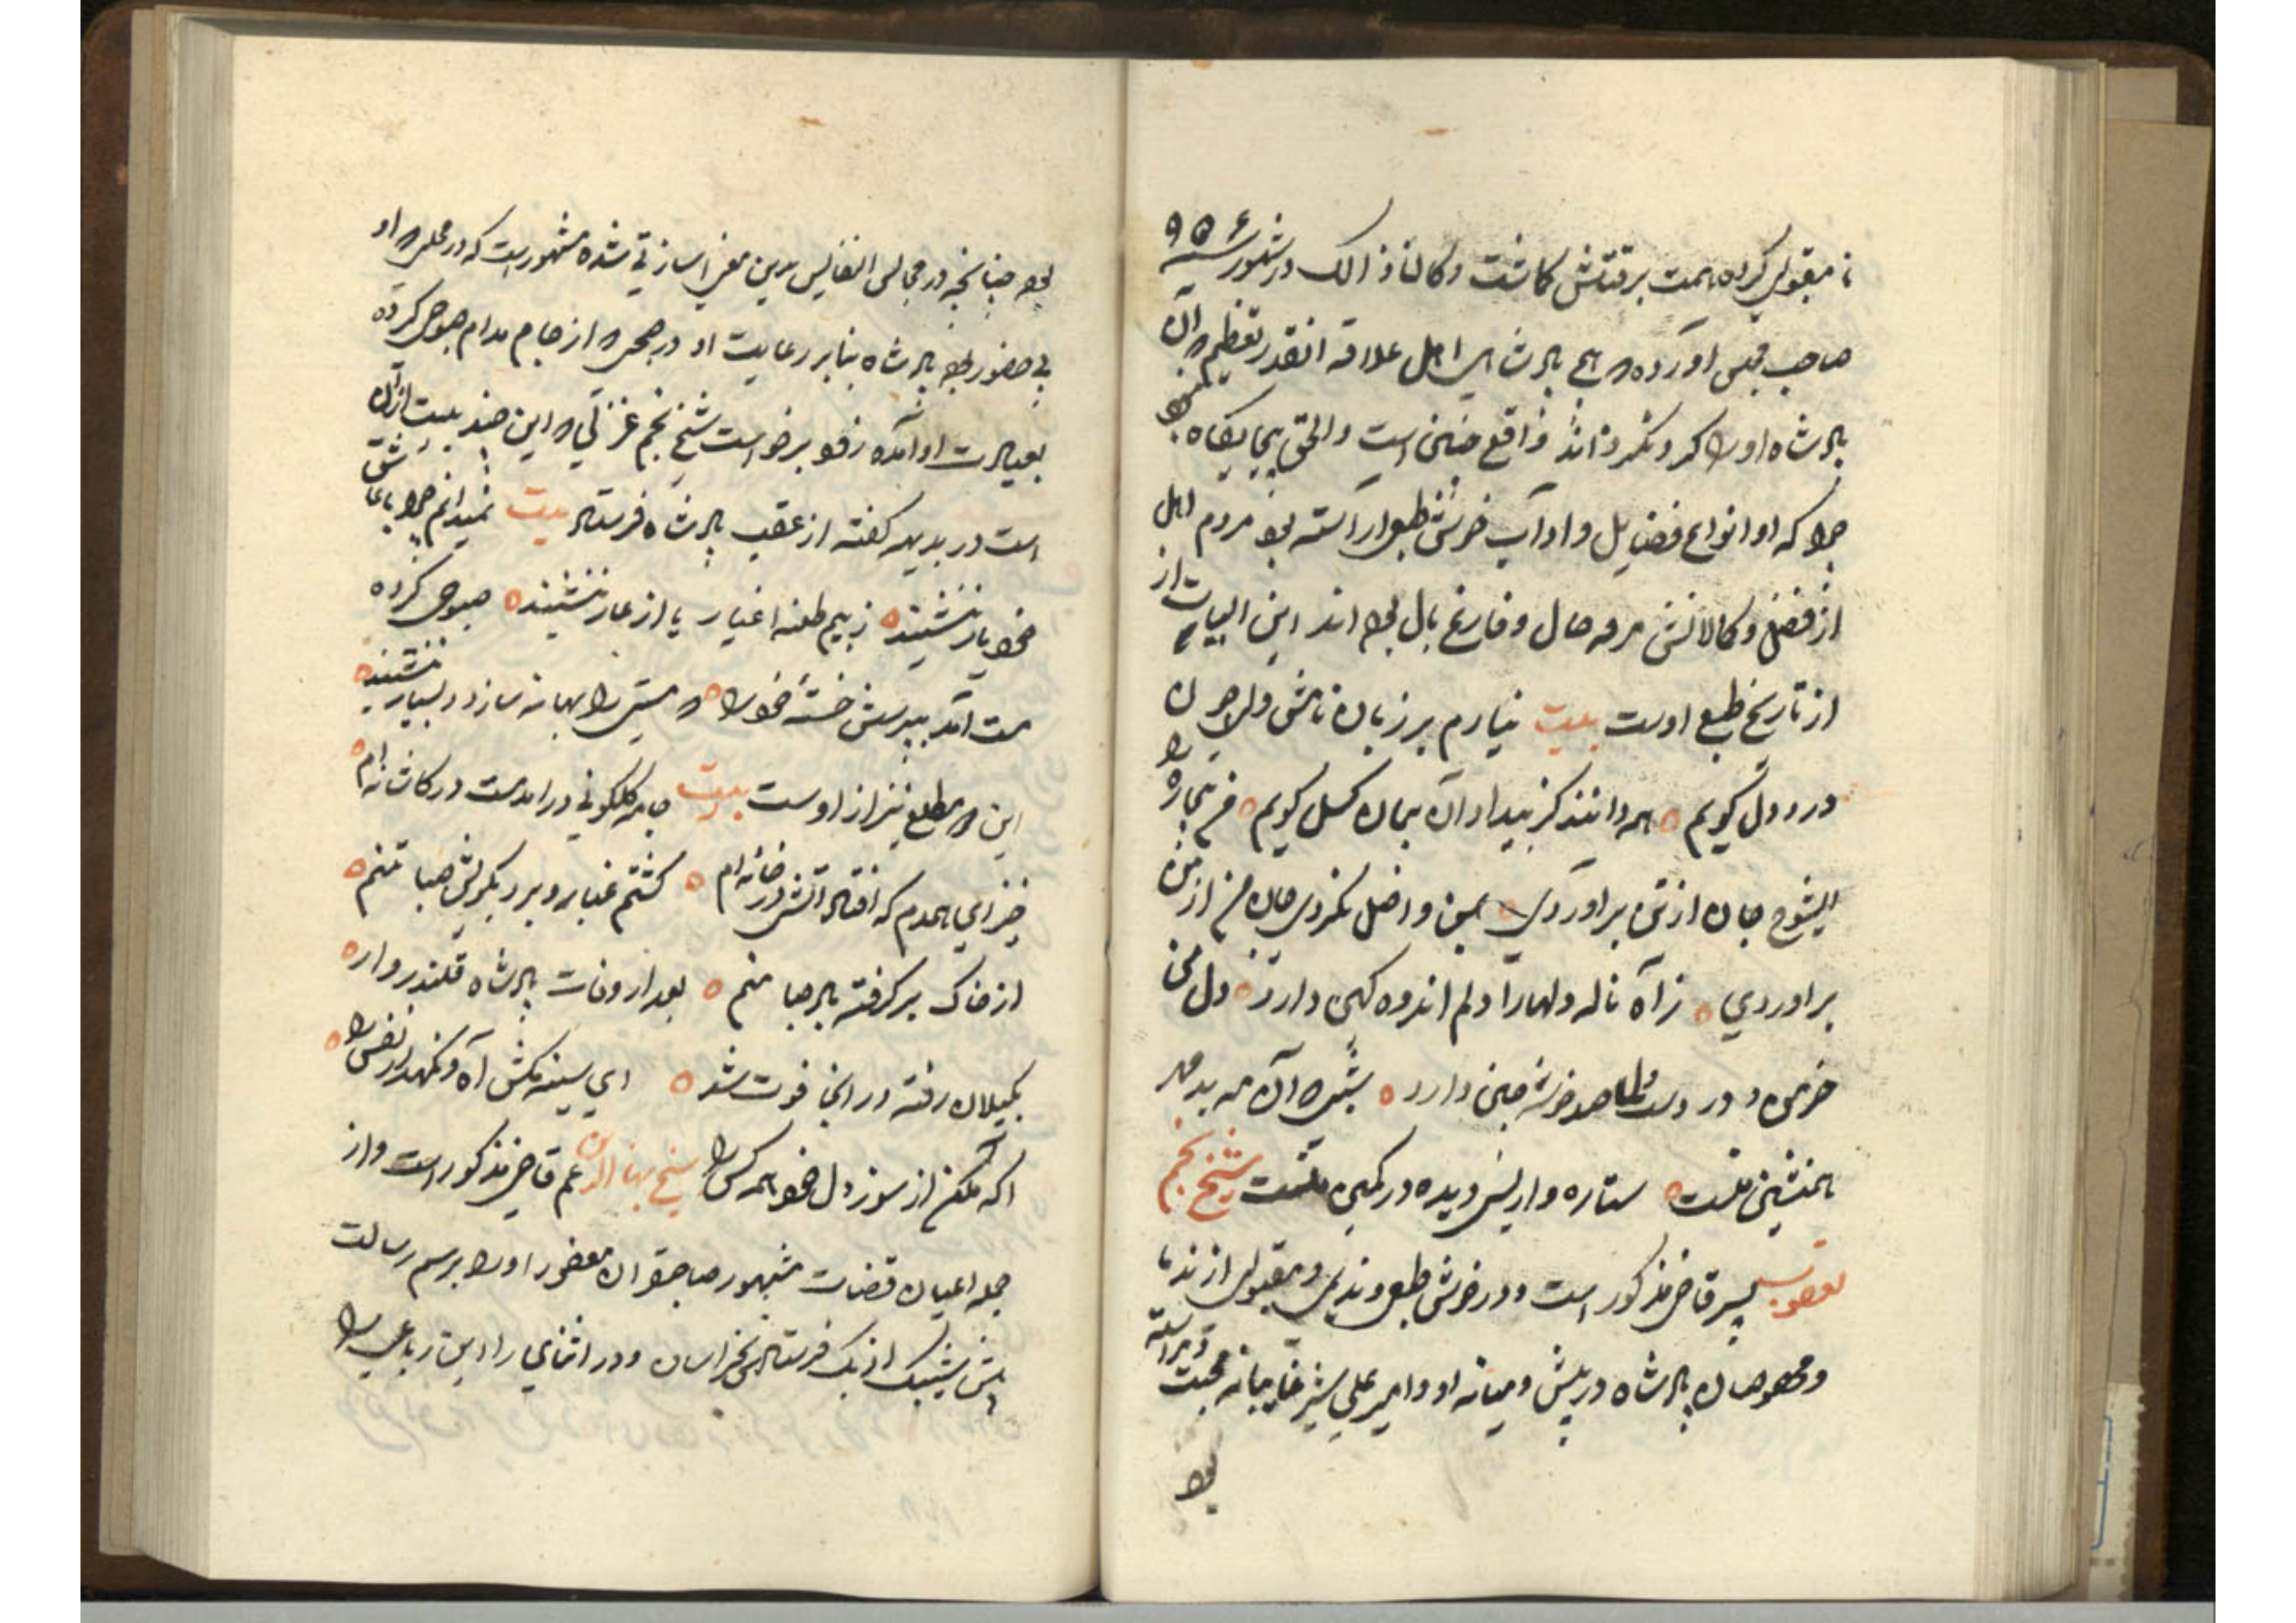 نا مقبولی کرده همت بر قتلش کماشت وکان ذالک در شهور سنه ۹۵۶
صاحب مجلس آورده هیچ پادشاهی اهل علاقه انقدر تعظیم که آن
پادشاه او را کرد نکرده اند واقع چنین است والحق بیجایکاه نبود
چرا که او انواع فضایل و اداب خوش طبع اراسته بود مردم اهل
از فضل و کمالاتش مرفه حال و فارغ بال بوده اند این ابیات از
از تاریخ طبع اوست بیت نیارم بر زبان نامش ولی چون
درد دل کویم همه دانند کز بیداد آن پیمان کسل کویم من بیچاره را
ای شوخ جان از تن براوردی بمن واصل نکردی جان من از من
براوردی ز آه ناله دلها را دلم اندوه کین دارد دل من
خرمن درد است و صد خوشه چین دارد شبی که آن مه بد مهر
همنشین منست ستاره وار بسی دیده در کمین منست شیخ نجم
یعقوب پسر قاضی مذکور است و در خوش طبعی و ندیمی و مقبولی از ندما
و مخصوصان پادشاه در پیش و میانه او و امیر علی شیر غایبانه محبت و مراسله
بوده
بوده چنانچه در مجالس النفایس بدین معنی اشارتی شده مشهور است که در محلی که او
بی حضور بوده پادشاه بنابر رعایت او در صحری از جام مدام صبوحی کرده
بعیادت او آمده زود برخواست شیخ نجم غزلی که این چند بیت ازان
است در بدیهه کفته از عقب پادشاه فرستاد بیت نمیدانم چرا با عاشق
خود یار ننشیند ز بیم طعنه اغیار یا از عار ننشیند صبوحی کرده
مست آمد بپرسش خسته خود را که مستی را بهانه سازد و بسیار ننشیند
این مطلع نیز از اوست بیت جامه کلکونی درامد مست در کاشانه ام
خیز ای همدم که افتاد اتش در خانه ام کشتم غبار و بر در یکرنکیش صبا منم
از خاک بر کرفته باد صبا منم بعد از وفات پادشاه قلندر وار
بکیلان رفته در انجا فوت شد ای سینه مکش آه و نکهدار نفس را
آکه مکن از سوز دل خود همه کس را شیخ بهاء الدین عم قاضی مذکور است و از
جمله اعیان قضات مشهور صاحبقران مغفور او را برسم رسالت
پیش شیبک ازبک فرستاد بخراسان و در اثنای راه این رباعی را